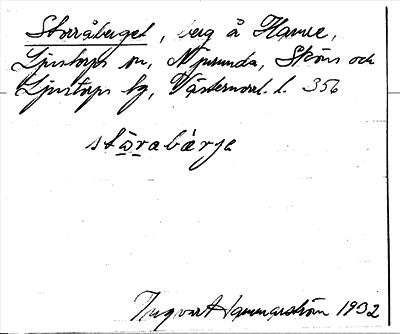 Storråberget, berg å Hamre,
Ljustorps sn, Njurunda, Sköns och
Ljustorps tg, Västernorrl. l. 356
stωrabärje
Ingvart Hammarström 1932